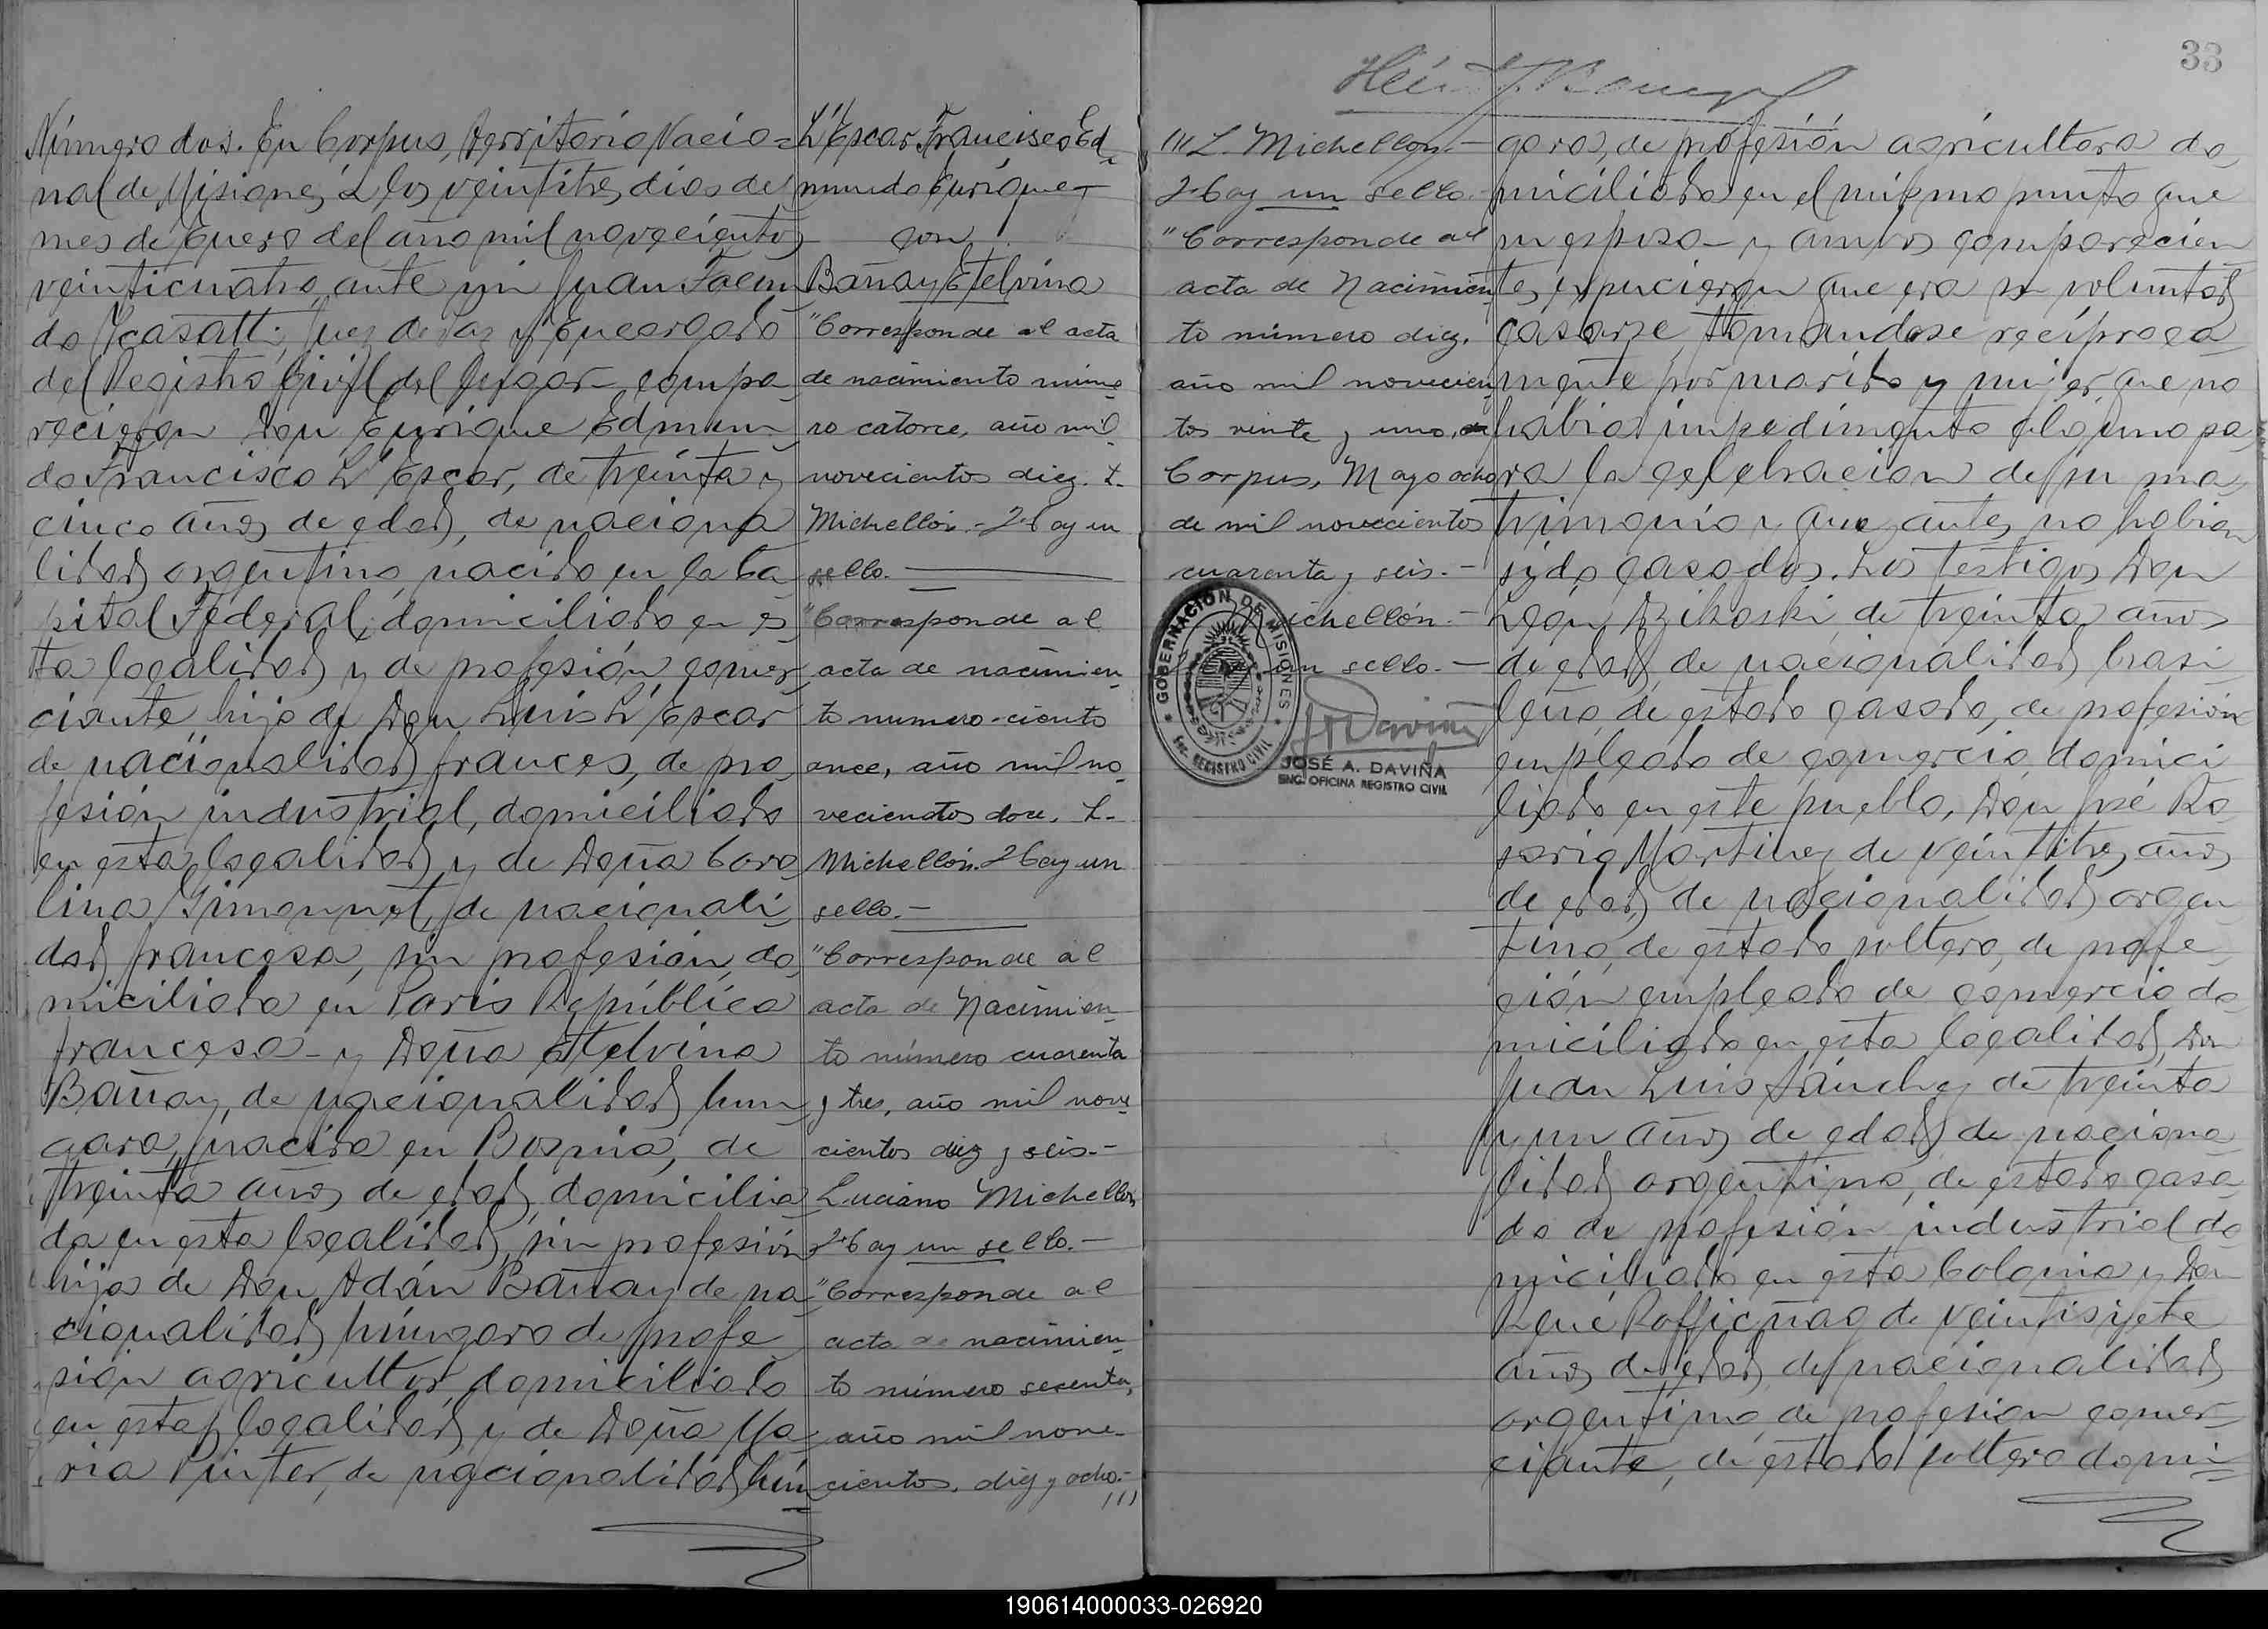 Número dos. En Corpus, Territorio Nacio=
nal de Misiones, á los veintitres dias del
mes de Enero del año mil novecientos
veinticuatro, ante mi Juan Facun
do Juez de Paz y Encargado
del Registro Civil del lugar compa
recieron Don Enrique Edmun
do Francisco L'Escar, de treinta y
cinco años de edad, de naciona
lidad argentino, nacido en la Ca
pital Federal, domiciliado en es
ta localidad y de profesión comer
ciante, hijo de Don Luis L'Escar
de nacionalidad frances, de pro
fesión industrial, domiciliado
en esta localidad y de Doña Caro
lina de nacionali
dad francesa, sin profesión, do
miciliada en Paris República
francesa - y Doña Etelvina
Bañay, de nacionalidad hun
gara, nacida en Bosnia, de
treinta años de edad, domicilia
da en esta localidad, sin profesión
hija de Don Adán Bañay de na
cionalidad húngaro de profe
sión agricultor, domiciliado
en esta localidad y de Doña Ma
ria Pinter, de nacionalidad hún
L'Escar Francisco Ed
mundo Enrique -
con
Bañay Etelvina
"Corresponde al acta
de nacimiento núme
ro catorce, año mil
novecientos diez. L.
Michellón.- Hay un
sello.
"Corresponde al
acta de nacimien
to numero ciento
once, año mil no
vecientos doce. L.
Michellón. Hay un
sello.-
"Corresponde al
acta de Nacimien
to número cuarenta
y tres, año mil nove
cientos diez y seis.-
Luciano Michellón
Hay un sello.-
"Corresponde al
acta de nacimien
to número sesenta,
año mil nove-
cientos, diez y ocho.-
///
33
/// L. Michellon.-
Hay un sello.
"Corresponde al
acta de Nacimien
to número diez,
año mil novecien
tos veinte y uno.
Corpus, Mayo ocho
de mil novecientos
cuarenta y seis.-
Michellón.-
un sello.-
GOBERNACIÓN DE MISIONES
REGISTRO CIVIL
JOSÉ A. DAVIÑA
ENC. OFICINA REGISTRO CIVIL
gara, de profesión agricultora do
miciliada en el mismo punto que
su esposo - y ambos comparecien
tes, expucieron que era su voluntad
casarse, tomandose recíproca
mente por marido y mujer, que no
habia impedimento alguno pa
ra la celebracion de su ma
trimonio y que antes no habian
sido casados. Los testigos Don
León de treinta años
de edad, de nacionalidad brasi
leño, de estado casado, de profesión
empleado de comercio, domici
liado en este pueblo, Don José Ro
sario Martinez de veintitres años
de edad, de nacionalidad argen
tino, de estado soltero, de profe
ción empleado de comercio do
miciliado en esta localidad, Don
Juan Luis Sánchez de treinta
y un años de edad, de naciona
lidad argentino, de estado casa
do de profesión industrial do
miciliado en esta Colonia y Don
René de veintisiete
años de edad, de nacionalidad
argentino, de profesion comer
ciante, de estado soltero domi
190614000033-026920